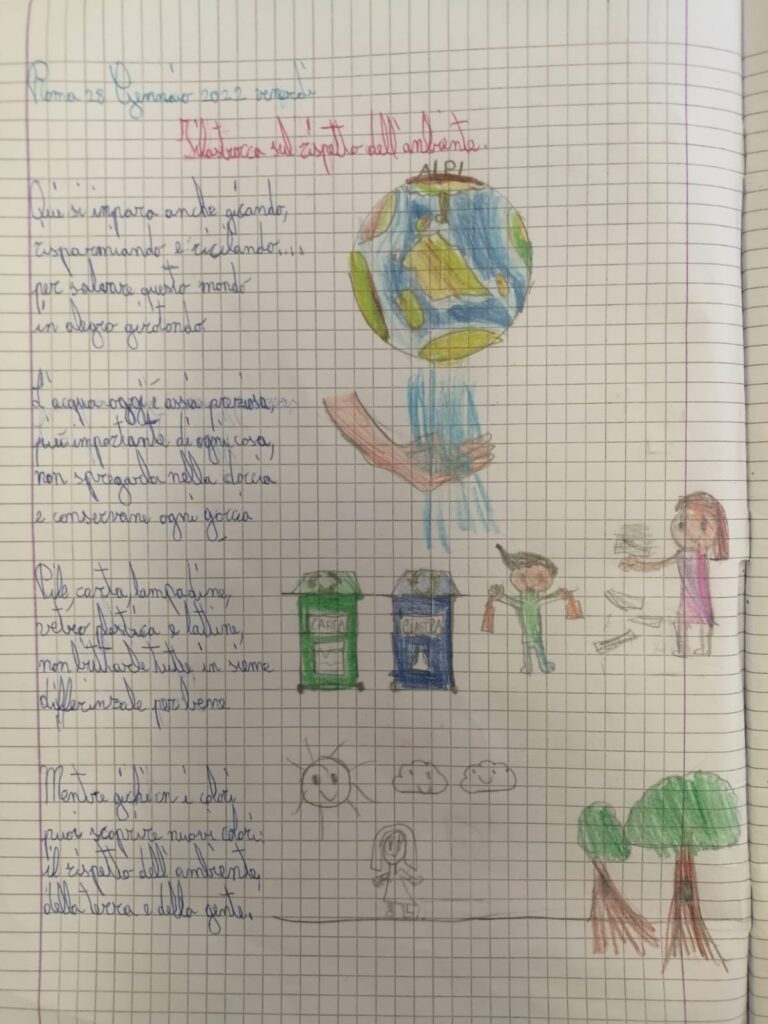 Roma 28 Gennaio 2022 venerdì
Filastrocca sul rispetto dell'anbiente.
ALPI
Qui si inpara anche gicando,
risparmiando e riciclando....
per salvare questo mondo
in alegro girotondo
L'acqua oggi è assia preziosa,
più importante di ogni cosa,
non spregarla nella doccia
e conservane ogni goccia
Pile, carta, lampadine,
vetro plastica e lattine,
non buttarle tutte in sieme
differinzale per bene
CARTA
PLASTPA
Mentre gichi cn i colori
puoi scoprire nuovi colori:
il rispetto dell'ambiente,
della terra e della gente.